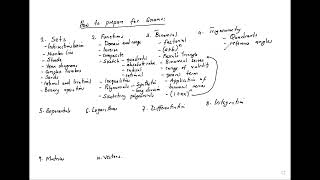 How to prepare for Exams:
1. Sets
- Indices/Interval
- Number line
- Venn diagrams
- Surds
- Binary operation
2. Functions
- Domain and range
- Inverse
- composite
- Sketch - quadratic
- absolute value
- radical
- rational
- Inequalities
- Polynomials - Synthetic
- long division
- Sketching polynomials
3. Binomial
- factorial
- Pascal's triangle
- Binomial series
- range of validity
- general term
- Application of binomial series
- (1+x)ⁿ
4. Trigonometry
- Quadrants
- reference angles
5. Exponentials
6. Logarithms
7. Differentiation
8. Integration
9. Matrices
10. Vectors